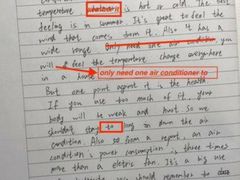 temperature whatever is hot or cold. The best
feeling is in summer. It's great to feel the
wind that comes from it. Also it has a
wide range. Only need one air condition you
will feel the temperature change everywhere
in a house. only need one air conditioner to
But one point against it is the health
If you use too much of it, your
body will be weak and hurt. So we
shouldn't stay to long in the air
condition. Also from a report, an air
condition's power consumption is three times
more than a electric fan. It's a big use
you should remember to